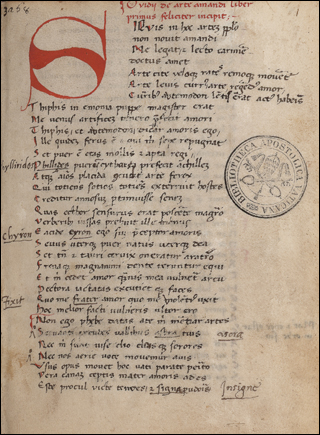 Ovidii de arte amandi liber
primus feliciter incipit
SIquis in hoc artem pplo
non novit amandi
Me legat et lecto carmine
doctus amet
Arte cite veloq rate remoq moventur
Arte leves currus arte regendus amor
Curribus Aphtomedon lentis erat actus habenis
Thiphis in emonia puppe magister erat
Me venus artificem tenero prefecit amori
Tiphis et aphtomedon dicar amoris ego
Ille quidem ferus est et qui mihi sepe repugnet
Sed puer est etas mollis et apta regi
hyllirides
Phyllides puerum cythara prefecit achillem
Atq animos placida contudit arte feros
Qui totiens socios totiens exterruit hostes
Creditur annosum pertimuisse senem
Quas hector sensurus erat poscente magistro
Verberibus iussas prebuit ille manus
Chyron
Eacide chyron ego sum preceptor amoris
Sevus uterq puer natus uterq dea
Sed tamen et tauri cervix oneratur aratro
Frenaq magnanimi dente teruntur equi
Et mihi cedet amor quamvis mea vulnet arcu
Pectora iactatas excutiet q faces
fixit
Quo me amor quo me violentius uxit
Hoc melior facti vulneris ultor ero
Non ego phebe datas ate mihi mentiar artes
vallibus tuis
ascra
Nec mihi sunt vise clio clius q sorores
Nec nos aerie voce monemur avis
Usus opus movet hoc vati parete perito
Vera canam ceptis mater amoris ades
Este procul vitte tenues pudoris
Insigne
BIBLIOTHECA APOSTOLICA VATICANA